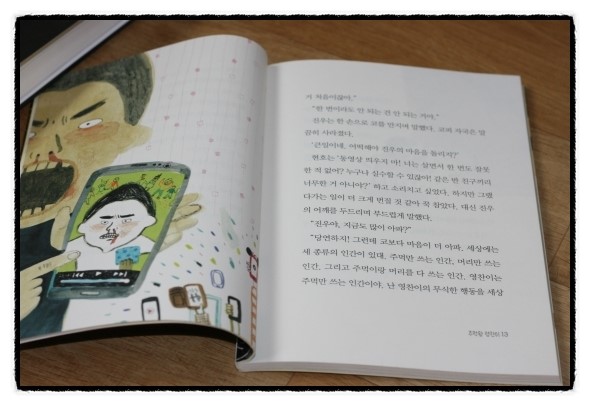 저 처음이잖아."
"한 번이라도 안 되는 건 안 되는 거야."
진우는 한 손으로 코를 만지며 말했다. 코피 자국은 말
끔히 사라졌다.
'큰일이네, 어떡해야 진우의 마음을 돌리지?'
현호는 '동영상 띄우지 마! 너는 살면서 한 번도 잘못
한 적 없어? 누구나 실수할 수 있잖아! 같은 반 친구끼리
너무한 거 아니야?' 하고 소리치고 싶었다. 하지만 그랬
다가는 일이 더 크게 번질 것 같아 꾹 참았다. 대신 진우
의 어깨를 두드리며 부드럽게 말했다.
"진우야, 지금도 많이 아파?"
"당연하지! 그런데 코보다 마음이 더 아파. 세상에는
세 종류의 인간이 있대. 주먹만 쓰는 인간, 머리만 쓰는
인간, 그리고 주먹이랑 머리를 다 쓰는 인간. 영찬이는
주먹만 쓰는 인간이야. 난 영찬이의 무식한 행동을 세상